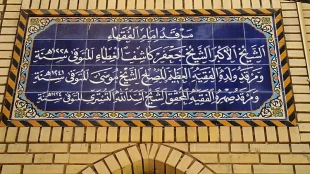 مرقد إمام الفقهاء
الشيخ الأكبر الشيخ جعفر كاشف الغطاء المتوفى سنة ١٢٢٨هـ
ومرقد ولده الفقيه المصلح الشيخ موسى المتوفى سنة ١٢٤١هـ
ومرقد صهره الفقيه المحقق الشيخ أسد الله التستري المتوفى سنة